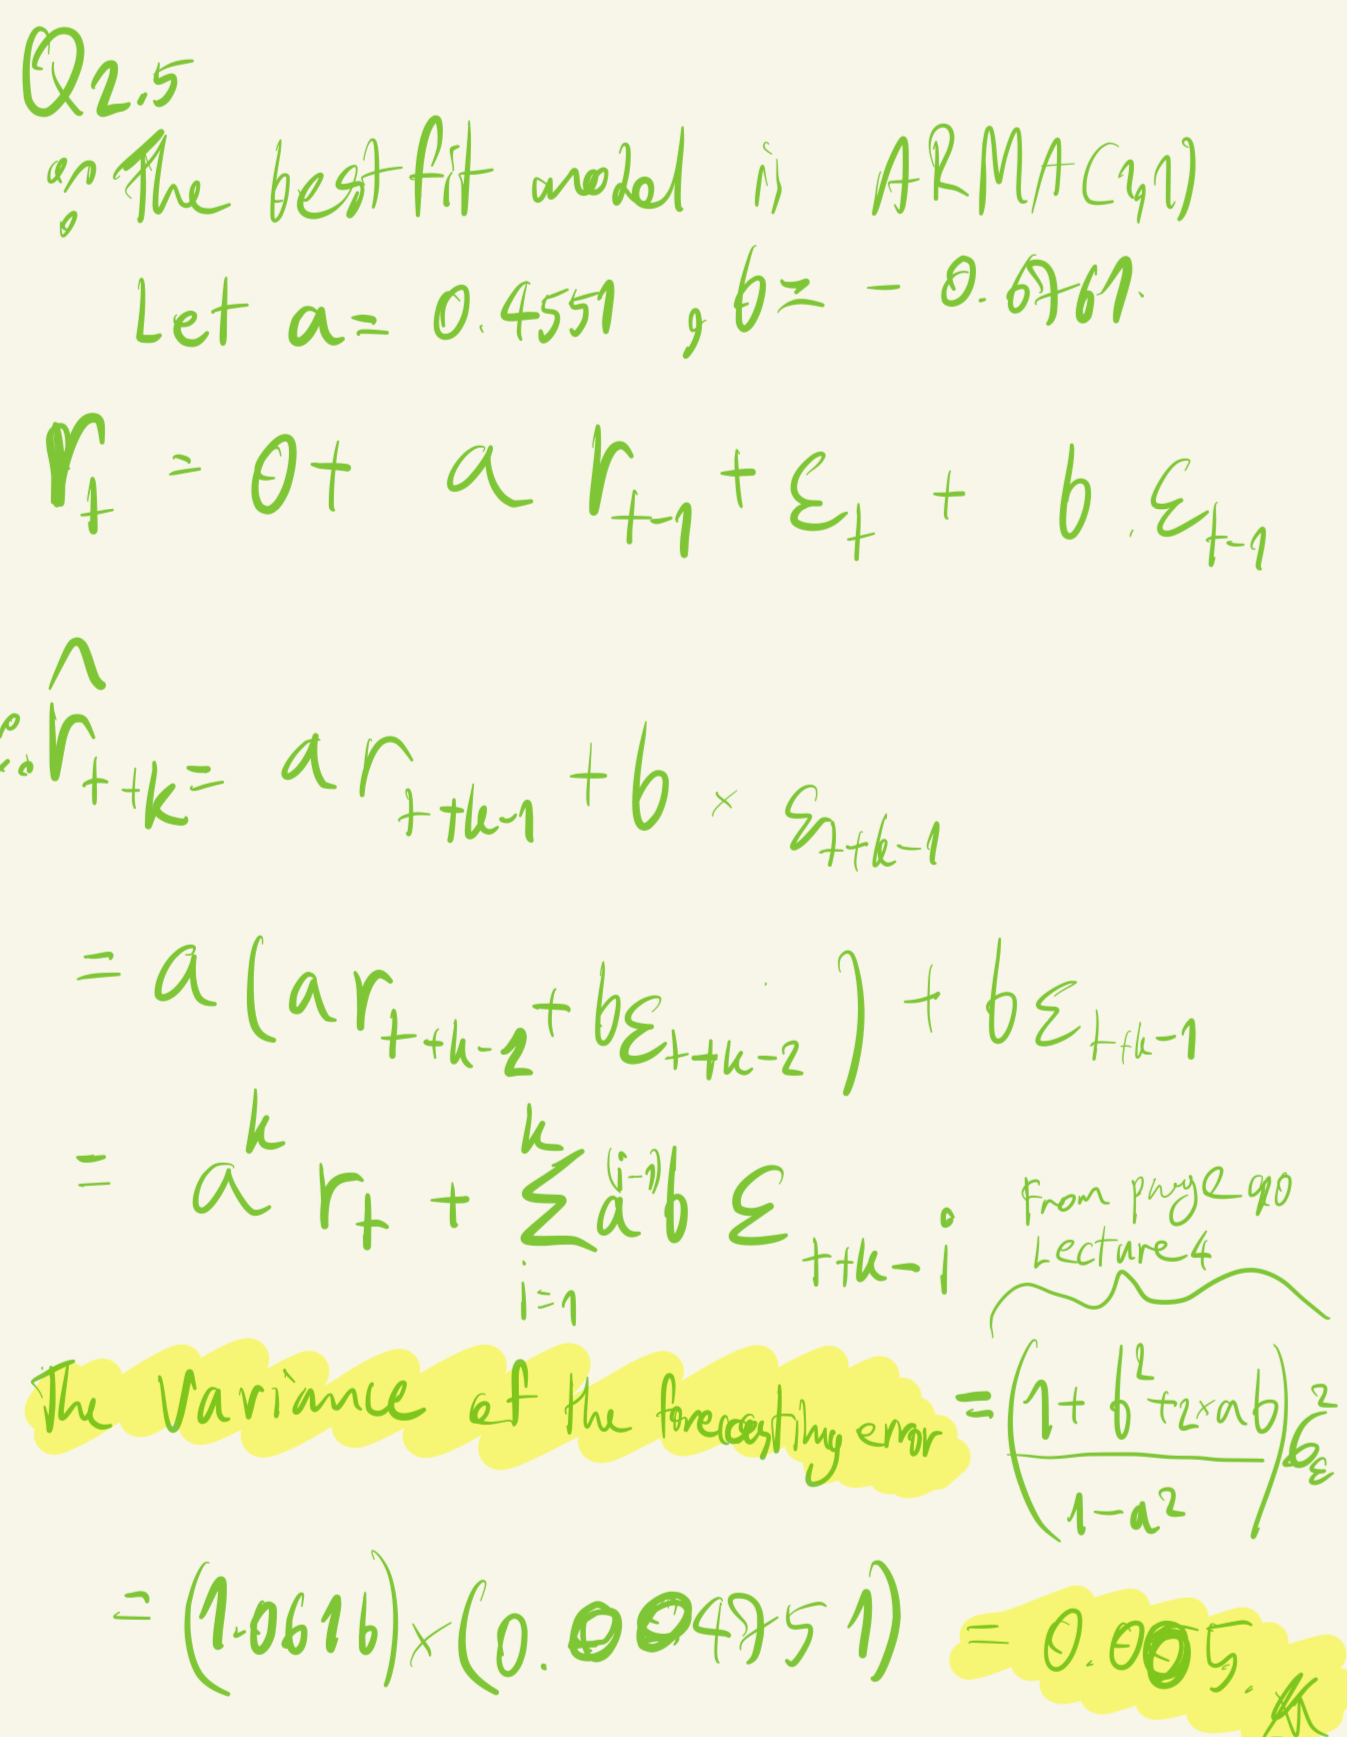 Q2.5
∵ The best fit model is ARMA(1,1)
Let a = 0.4551 , b = - 0.6761.
r_t = 0 + a r_{t-1} + ε_t + b . ε_{t-1}
∴ r̂_{t+k} = a r_{t+k-1} + b × ε_{t+k-1}
= a (a r_{t+k-2} + b ε_{t+k-2}) + b ε_{t+k-1}
= a^k r_t + Σ_{i=1}^{k} a^{(i-1)} b ε_{t+k-i}
From page 90
Lecture 4
The Variance of the forecasting error = ((1 + b² + 2×ab) / (1 - a²)) σ_ε²
= (1.0616) × (0.004751) = 0.005.